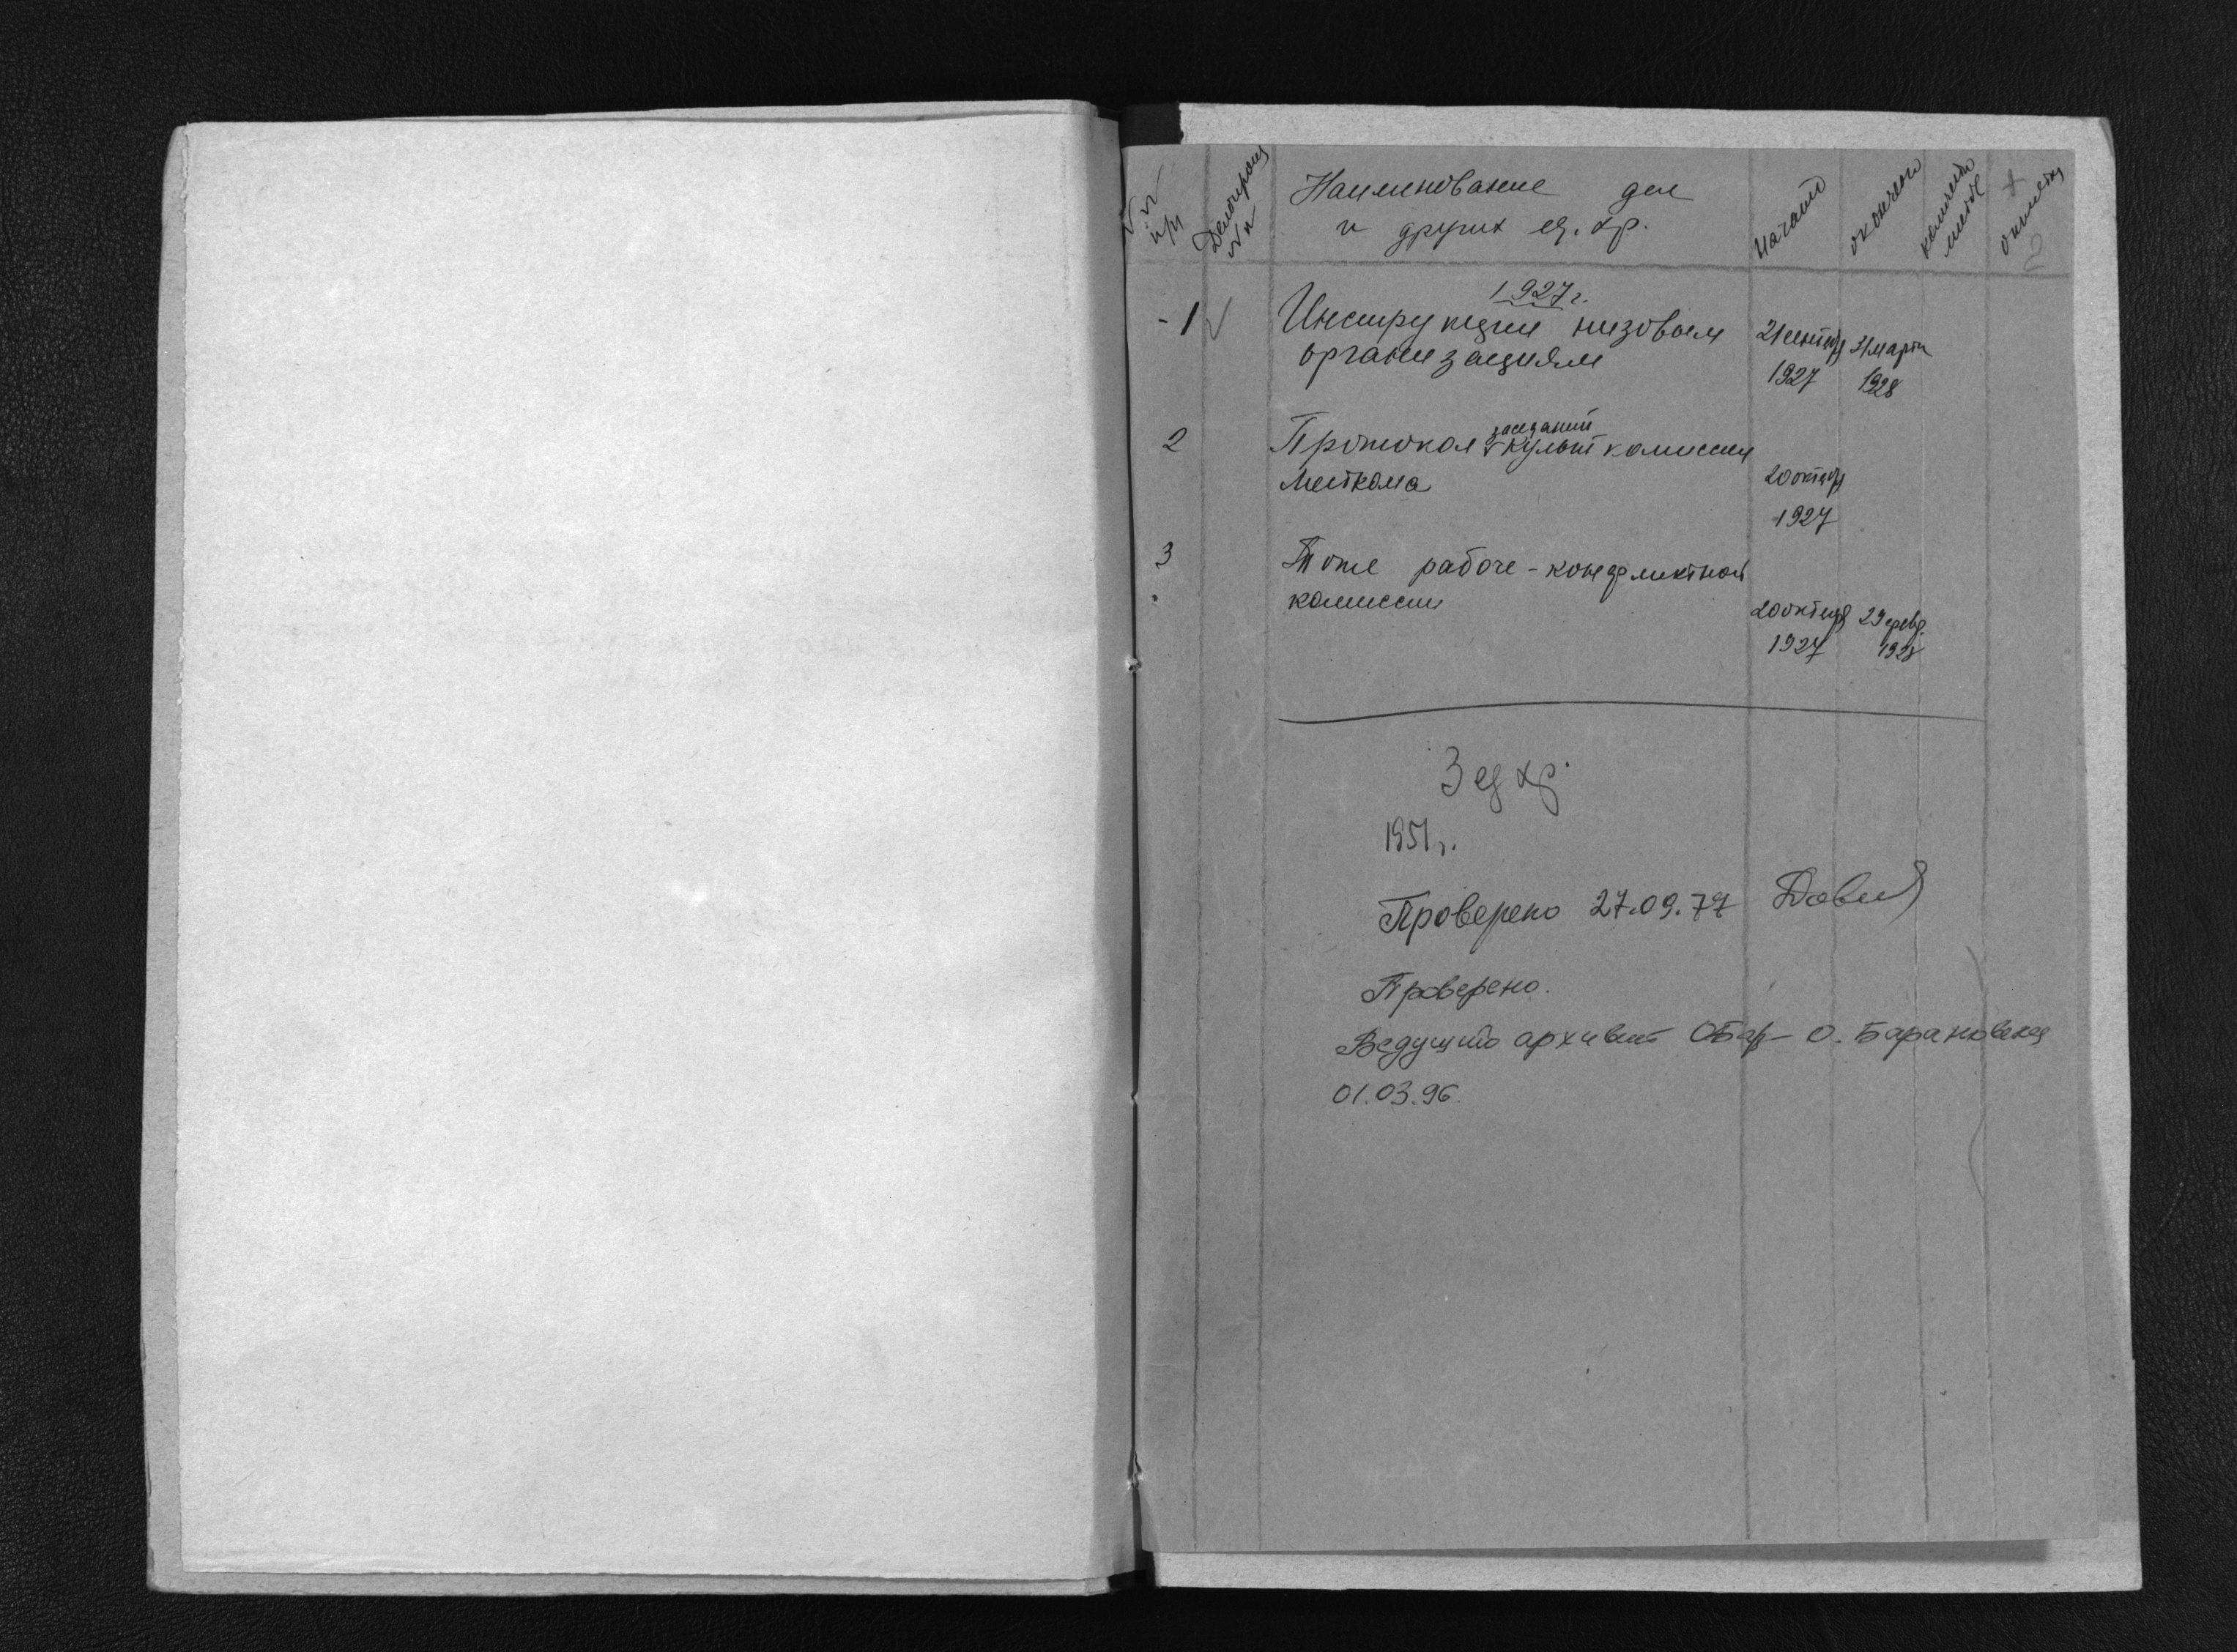 №№ п/п
Делопроизв №№
Наименование дел
и других ед. хр.
Начато
окончено
количество листов
отметки
2
1927 г.
1 Инструкции низовым 21 сентябр 31 марта
организациям 1927 1928
2 Протокол заседаний Культкомиссии
Месткома 20 октябр
1927
3 То же рабоче-конфликтной
комиссии 20 октябр 29 февр.
1927 1928
3 ед хр.
1951 г.
Проверено 27.09.77
Проверено.
Ведущий архивист О. Барановская
01.03.96.